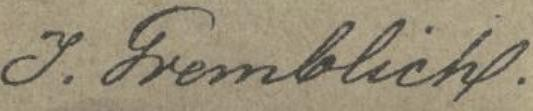 J. Tremblich.